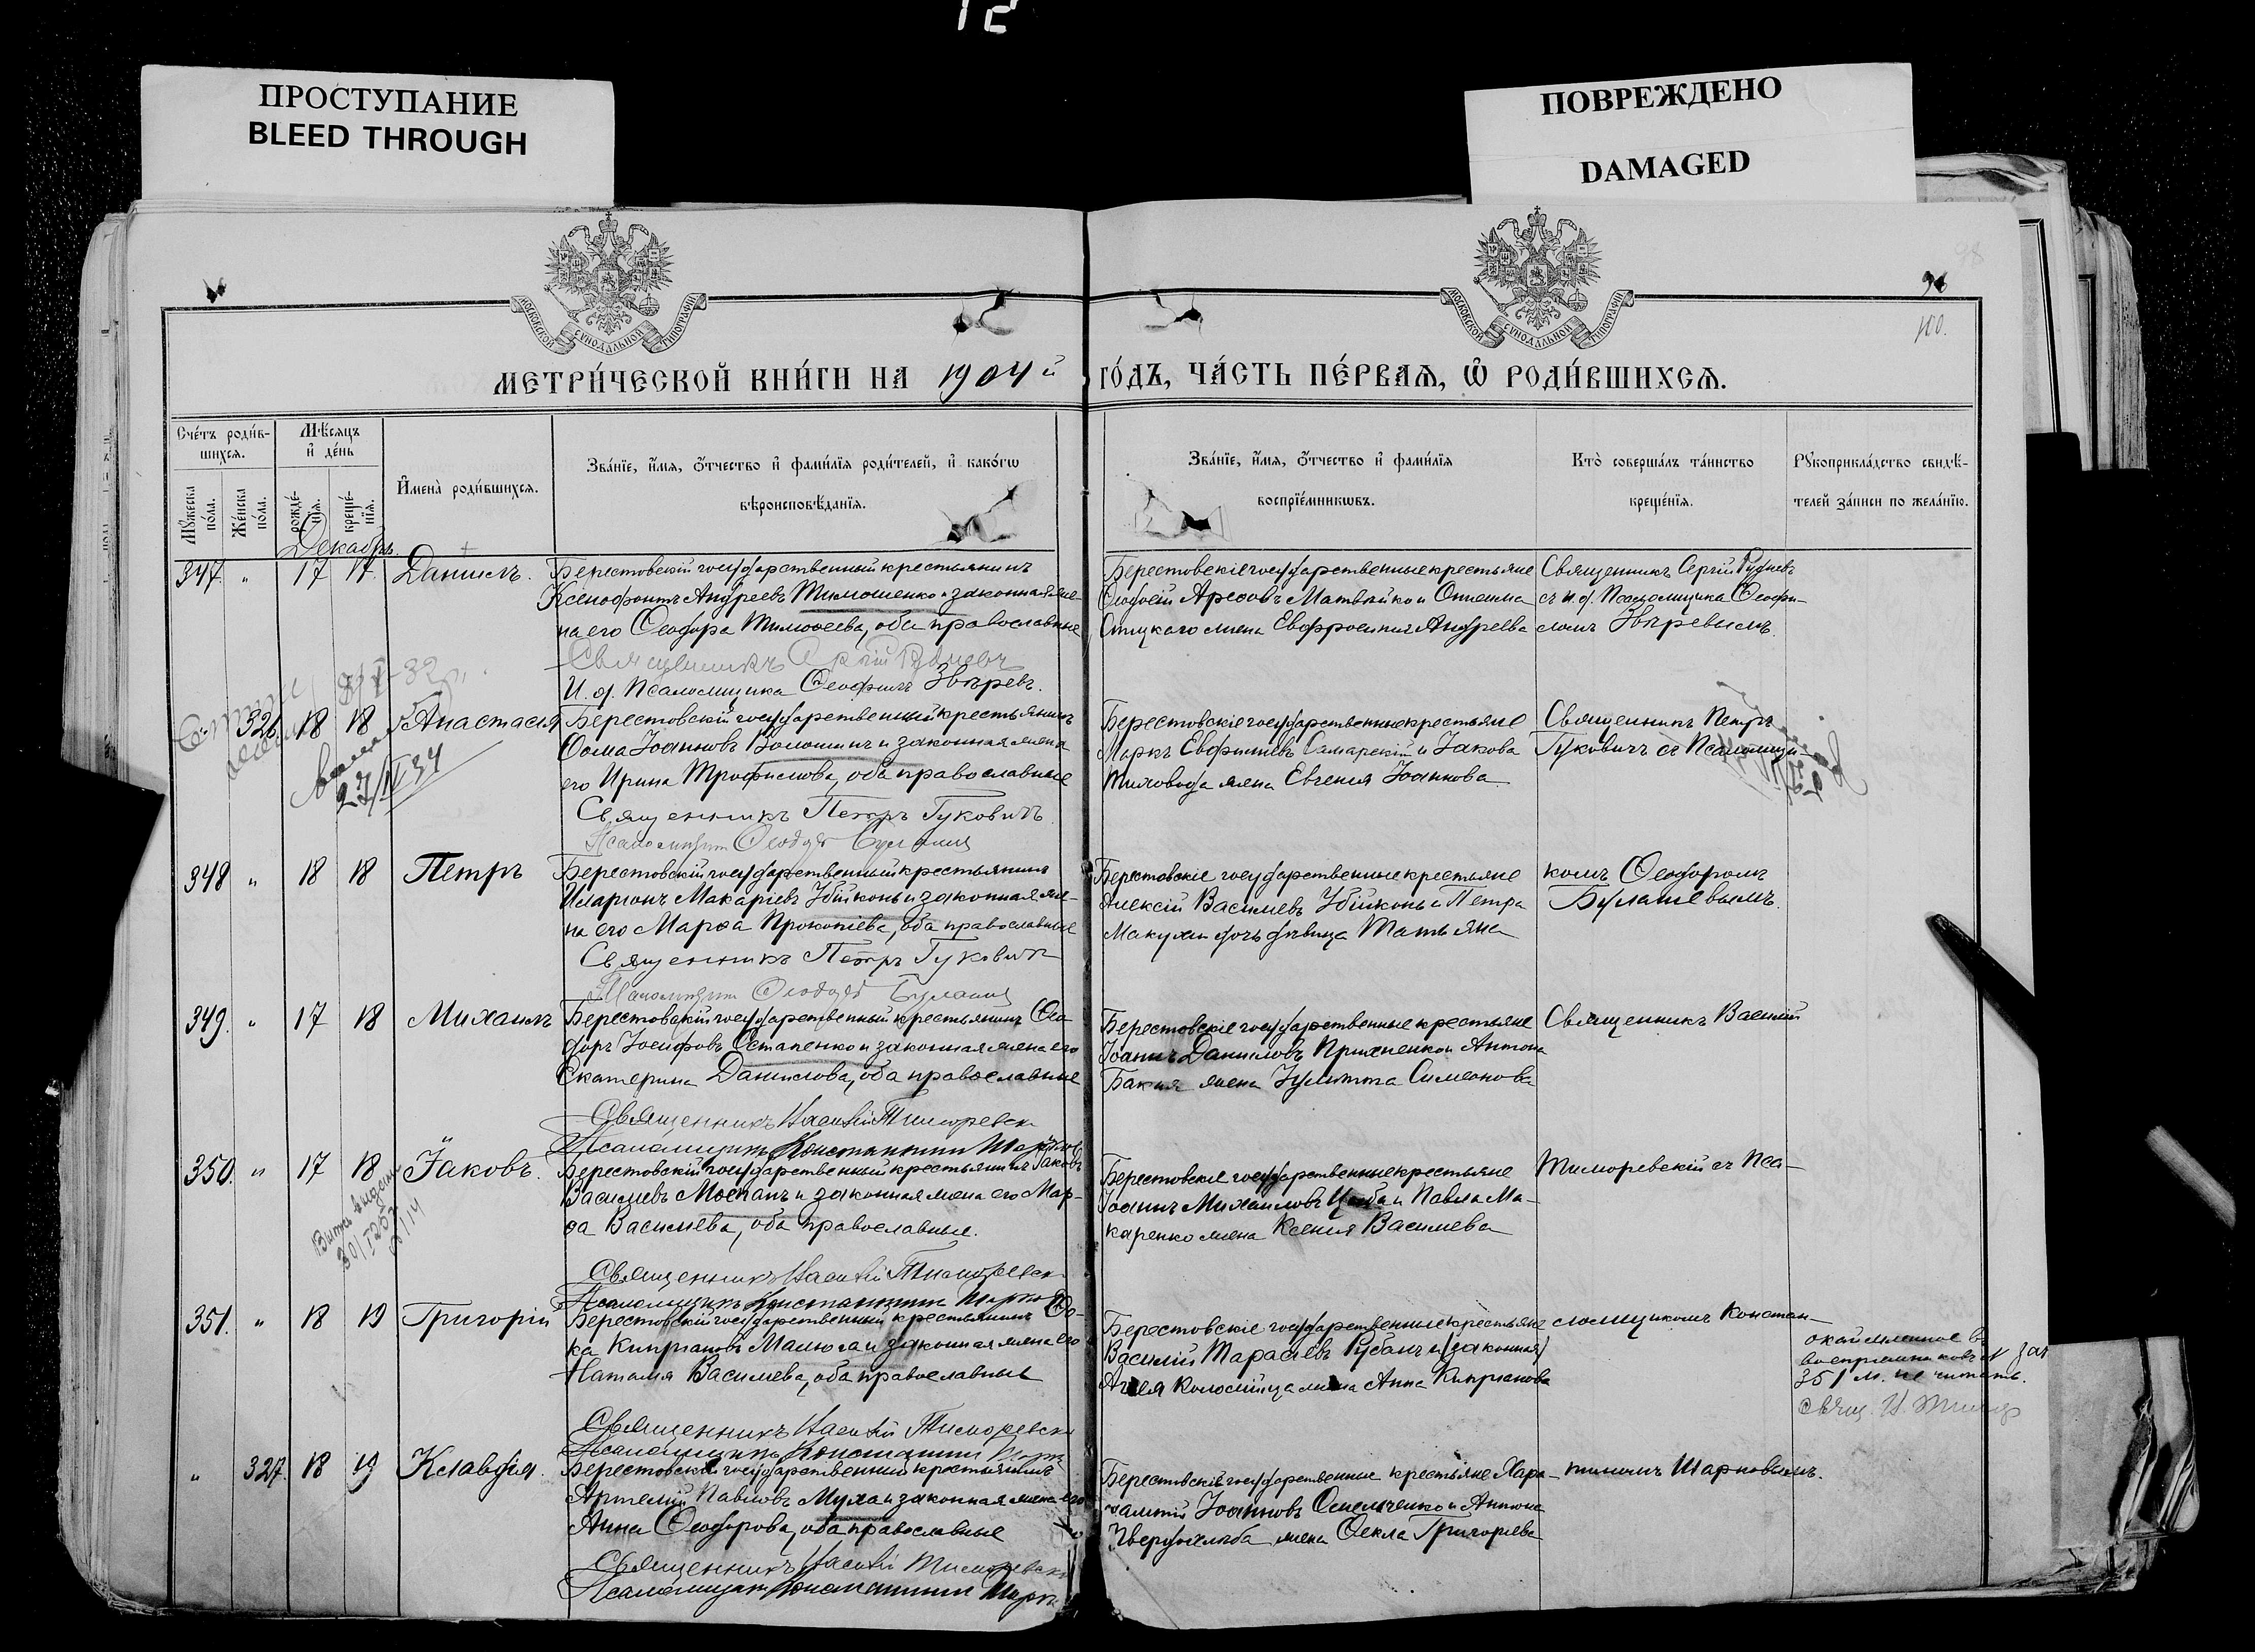 12
ПРОСТУПАНИЕ
BLEED THROUGH
ПОВРЕЖДЕНО
DAMAGED
98
МОСКОВСКОЙ СУНОДАЛЬНОЙ ТИПОГРАФІИ
МОСКОВСКОЙ СУНОДАЛЬНОЙ ТИПОГРАФІИ
110.
МЕТРИ́ЧЕСКОЙ КНИ́ГИ НА 1904й ГО́ДЪ, ЧА́СТЬ ПЕ́РВАѦ, Ѡ РОДИ́ВШИХСѦ.
Сче́тъ роди́в-
шихсѧ.
Мѣ́сѧцъ
и де́нь
Мꙋ́жеска по́ла.
Же́нска по́ла.
рожде́-нїѧ.
креще́-нїѧ.
Имена̀ роди́вшихсѧ.
Зва́нїе, и́мѧ, о́тчество и фами́лїѧ роди́телей, и како́гѡ
вѣроисповѣ́данїѧ.
Зва́нїе, и́мѧ, о́тчество и фами́лїѧ
воспрїе́мникѡвъ.
Кто̀ соверша́лъ та́инство
креще́нїѧ.
Рꙋкоприкла́дство свидѣ́-
телей за́писи по жела́нїю.
Декабрь.
347. " 17 17. Даниилъ.
Берестовскій государственный крестьянинъ
Ксенофонтъ Андреевъ Тимошенко и законная же-
на его Ѳеодора Тимоѳеева, оба православные
Священникъ Сергій Рудневъ
И. д. Псаломщика Ѳеофилъ Звѣревъ.
Берестовскіе государственные крестьяне
Ѳеодосій Ареѳовъ Матвѣйко и Онисима
жена Евфросинія Андреева
Священникъ Сергій Рудневъ
съ и. д. Псаломщика Ѳеофи-
ломъ Звѣревымъ.
326. 18 18 Анастасія
27/IV 34
Берестовскій государственный крестьянинъ
Ѳома Іоанновъ Волошинъ и законная жена
его Ирина Трофимова, оба православные
Священникъ Петръ Гуковичъ.
Псаломщикъ Ѳеодоръ
Берестовскіе государственные крестьяне
Маркъ Евфиміевъ Самарскій и Іакова
Тиховода жена Евгенія Іоаннова
Священникъ Петръ
Гуковичъ съ Псаломщи-
348 " 18 18 Петръ
Берестовскій государственный крестьянинъ
Иларіонъ Макаріевъ Убійконь и законная же-
на его Марѳа Прокопіева, оба православные
Священникъ Петръ Гуковичъ
Псаломщикъ Ѳеодоръ
Берестовскіе государственные крестьяне
Алексій Васильевъ Убійконь и Петра
Макухи дочь дѣвица Татьяна
комъ Ѳеодоромъ
Булашевымъ.
349. " 17 18 Михаилъ
Берестовскій государственный крестьянинъ Ѳео-
доръ Іосифовъ Остапенко и законная жена его
Екатерина Данилова, оба православные
Священникъ Василій Тиморевскі
Псаломщикъ Константинъ
Берестовскіе государственные крестьяне
Іоаннъ Даниловъ Прихненко и Антона
жена Іулитта Симеонова
Священникъ Василій
350. " 17 18 Іаковъ.
Берестовскій государственный крестьянинъ Іаковъ
Васильевъ Моспанъ и законная жена его Мар-
ѳа Васильева, оба православные.
Священникъ Василій Тиморевскі
Псаломщикъ Константинъ
Берестовскіе государственные крестьяне
Іоаннъ Михаиловъ и Павла Ма-
каренко жена Ксенія Васильева
Тиморевскій съ Пса-
351. " 18 19 Григорій
Берестовскій государственный крестьянинъ Ѳо-
ка Кипріановъ Малюга и законная жена его
Наталія Васильева, оба православные
Священникъ Василій Тиморевскі
Псаломщикъ Константинъ
Берестовскіе государственные крестьяне
Василій Тарасіевъ Рубанъ и (законная)
Аггея Коломійца жена Анна Кипріанова
ломщикомъ Констан-
окаймленное въ
воспріемниковъ № зап
351 м. не читать.
Свящ. В. Тимор
" 327. 18 19 Клавдія.
Берестовскій государственный крестьянинъ
Артемій Павловъ Муха и законная жена его
Анна Ѳеодорова, оба православные
Священникъ Василій Тиморевскі
Псаломщикъ Константинъ
Берестовскіе государственные крестьяне Хара-
лампій Іоанновъ Омельченко и Антона
жена Ѳекла Григорьева
тиномъ Шарковымъ.